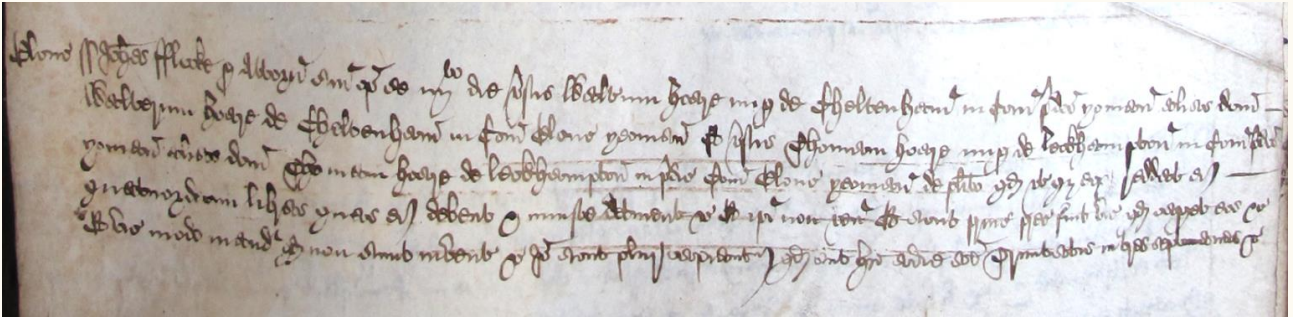 Glouc ss Johes fflucke p Attorn suu op se iiij to die v'sus Walterum hoare nup de Cheltenham in Com p'dco yoman alias dcm
Walterum hoare de Cheltenham in Com Glouc yeoman Et v'sus Thomam hoare nup de leckhampton in Com p'dco
yoman alias dcm Thomam hoare de leckhampton in p'dco Com Glouc yeoman de plito qd uterq eor reddat ei
quatuordecim libras quas ei debent & iniuste detinent &c Et ipi non ven Et sicut p'cept fuit vic qd cap'et eos &c
Et vic modo mand qd non sunt invent &c Io sicut plur capiant qd sint hic a die Pasche in tres septimanas &c